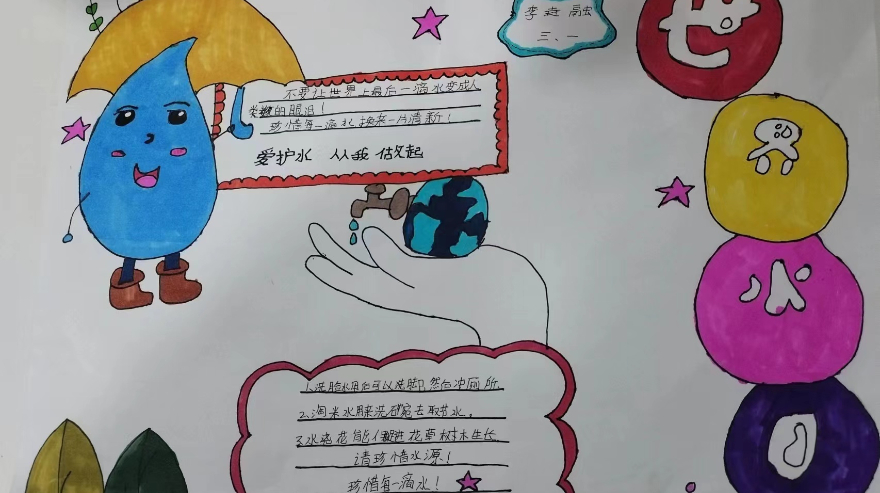 李 融
三、一
世
界
水
日
不要让世界上最后一滴水变成人
类的眼泪！
珍惜每一滴水换来一片清新！
爱护水 从我做起
1.洗脸水用后可以洗脚，然后冲厕所。
2.淘米水 洗 去 节水。
3.水 花能 进花草树木生长
请珍惜水源！
珍惜每一滴水！